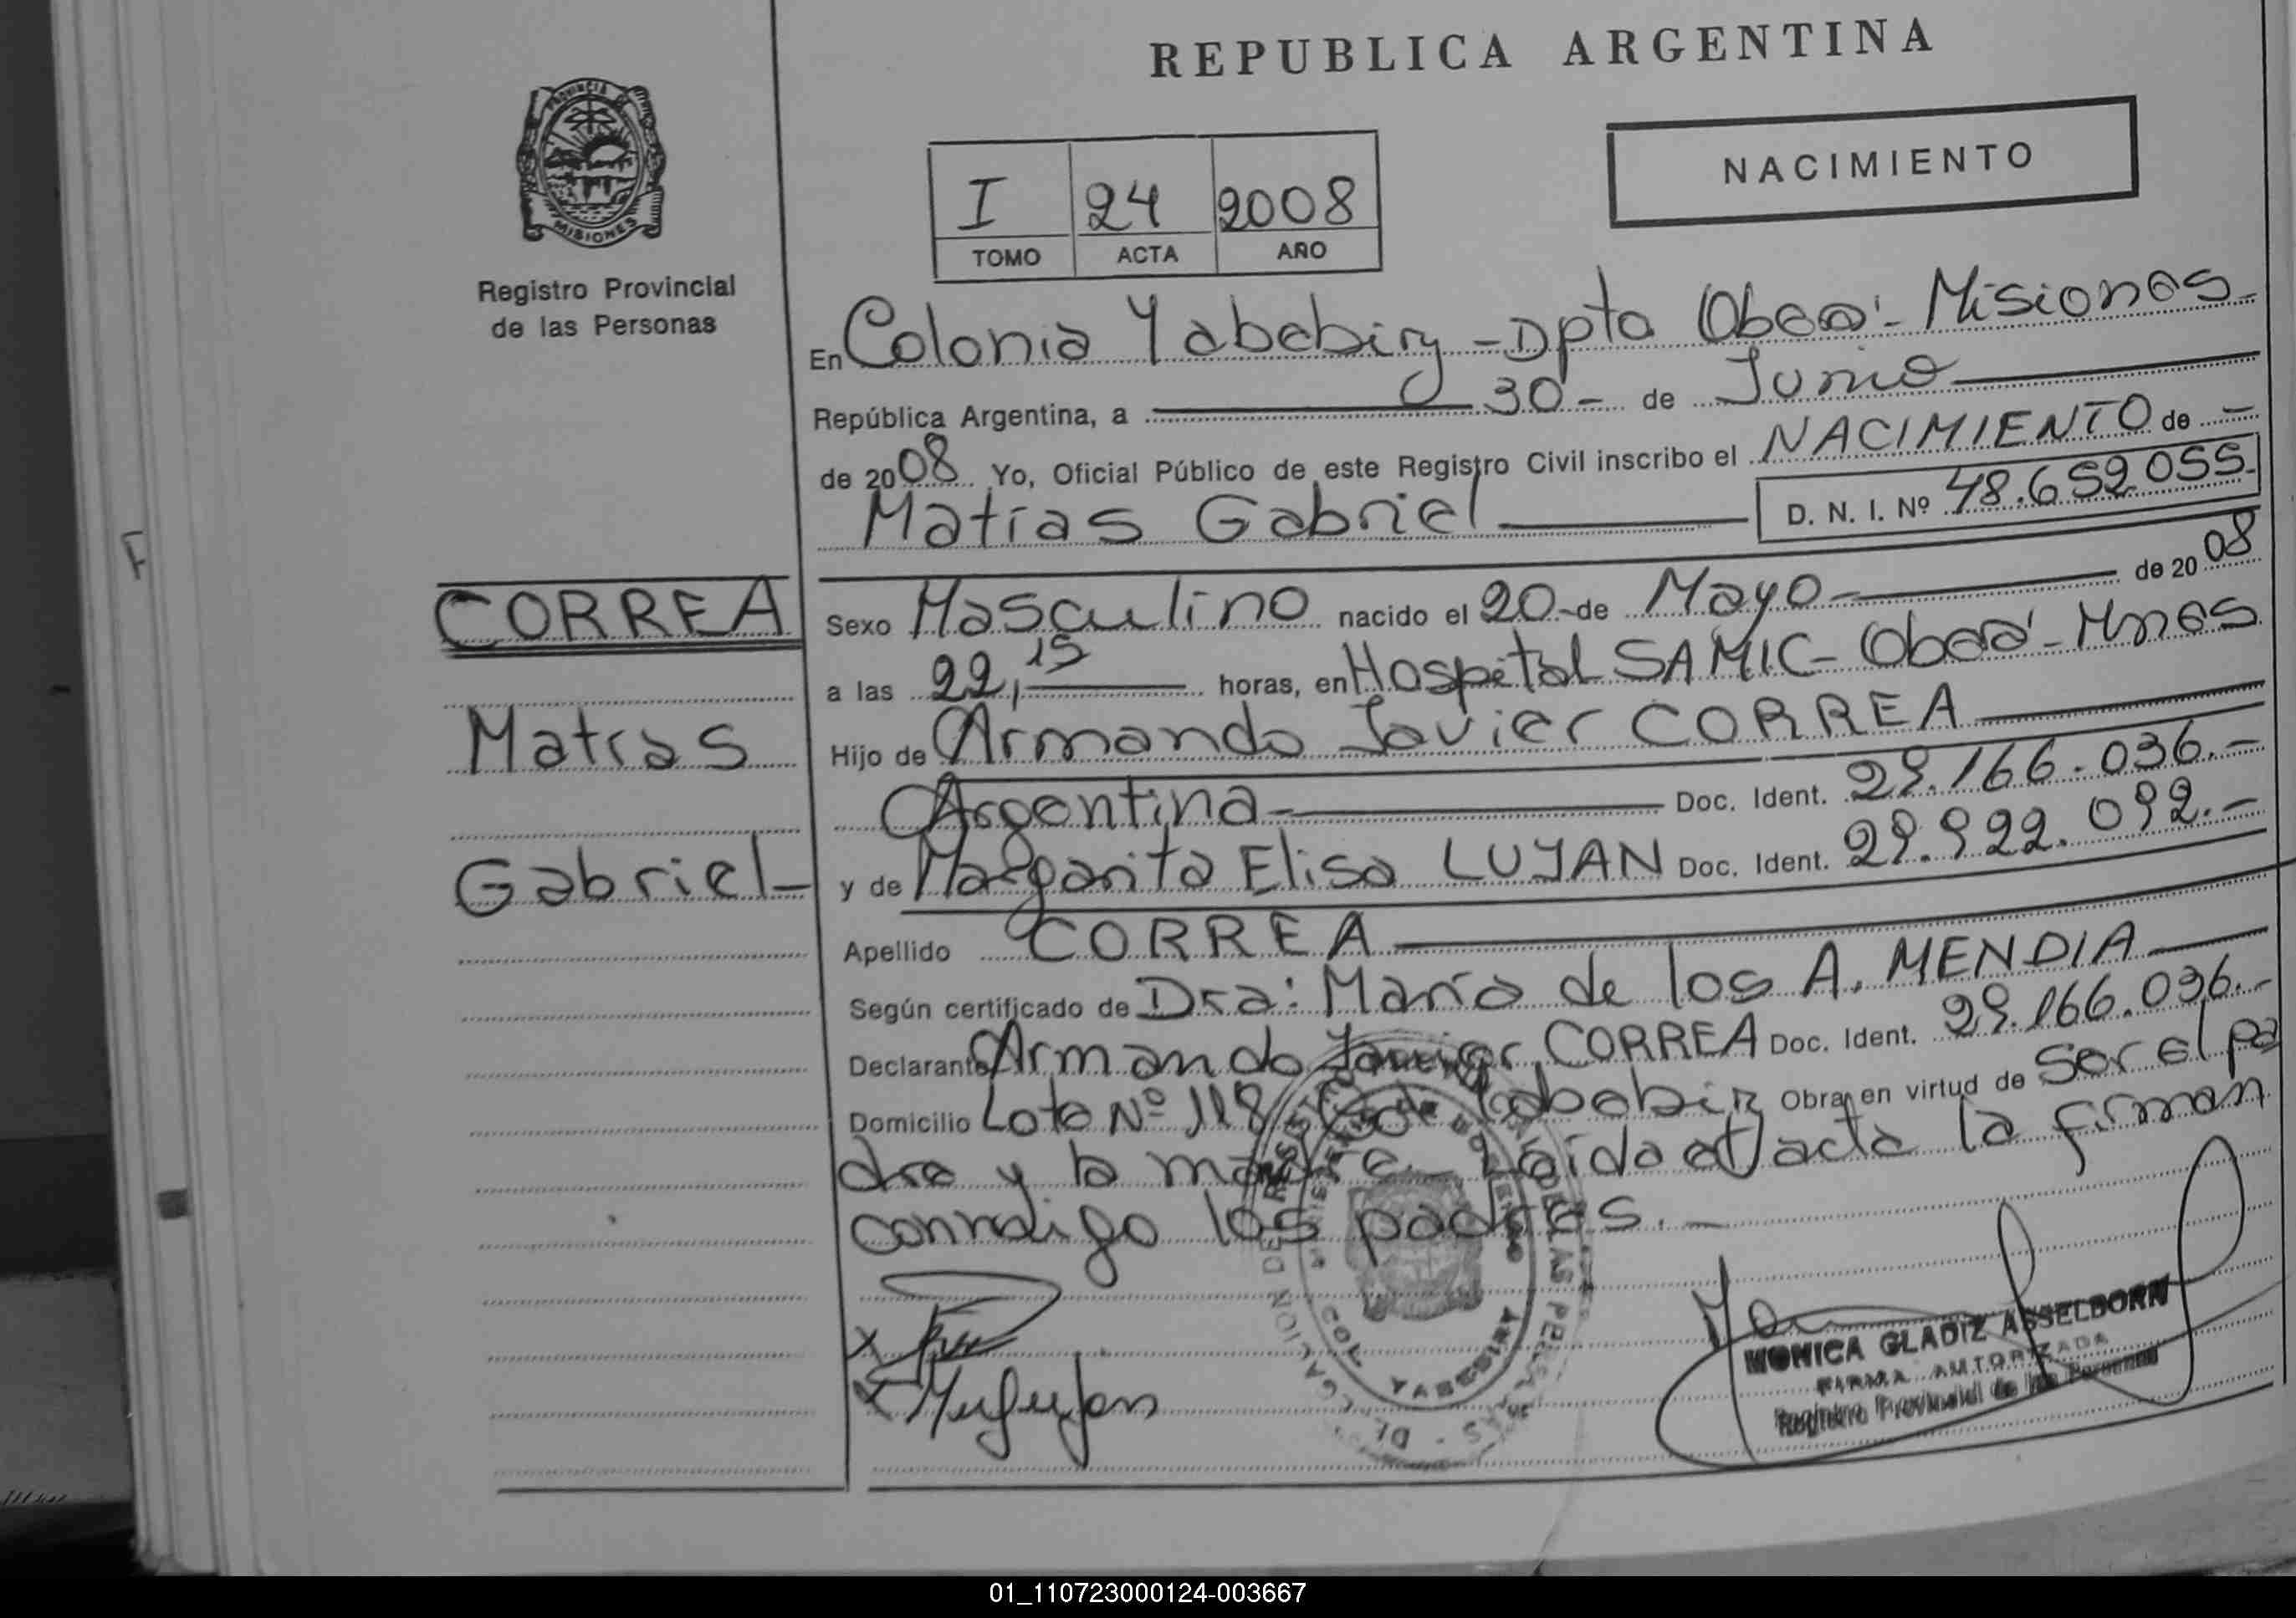 REPUBLICA ARGENTINA
PROVINCIA DE
MISIONES
Registro Provincial
de las Personas
NACIMIENTO
I 24 2008
TOMO ACTA AÑO
En Colonia Yabebiry - Dpto Oberá - Misiones
República Argentina, a 30 - de Junio
de 2008 Yo, Oficial Público de este Registro Civil inscribo el NACIMIENTO de -
Matías Gabriel D. N. I. Nº 48.652.055
CORREA
Matías
Gabriel
Sexo Masculino nacido el 20 - de Mayo - de 2008
a las 22,15 horas, en Hospital SAMIC - Oberá - Mnes
Hijo de Armando Javier CORREA
Argentina - Doc. Ident. 29.166.036.-
y de Margarita Elisa LUJAN Doc. Ident. 29.922.092.-
Apellido CORREA
Según certificado de Dra: María de los A. MENDIA
Declarante Armando Javier CORREA Doc. Ident. 29.166.036.-
Domicilio Lote Nº 118 Col Yabebiry Obra en virtud de ser el pa
dre y la madre. Leída el acta la firman
conmigo los padres. -
COL YABEBIRY
MONICA GLADIZ ASSELBORN
FIRMA AUTORIZADA
Registro Provincial de las Personas
01_110723000124-003667